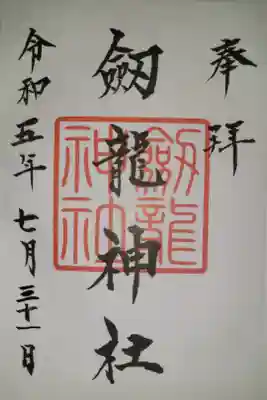 奉拝
劔龍神社
劔龍
神社
令和五年七月三十一日